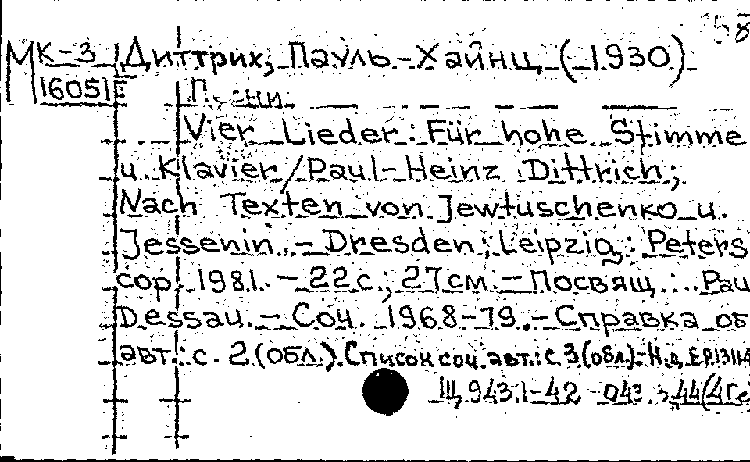 МК-3 Диттрих, Пауль-Хайнц (1930)
16051Е
Vier Lieder: Für hohe Stimme
u. Klavier/Paul-Heinz Dittrich;
Nach Texten von Jewtuschenko u.
Jessenin. - Dresden; Leipzig: Peters
cop. 1981. - 22с.; 27см. - Посвящ.: Pau
Dessau. - Соч. 1968-79. - Справка об
авт.: с. 2 (обл.). Список соч. авт.: с. 3 (обл.). - Н.д.
Щ943.1-42